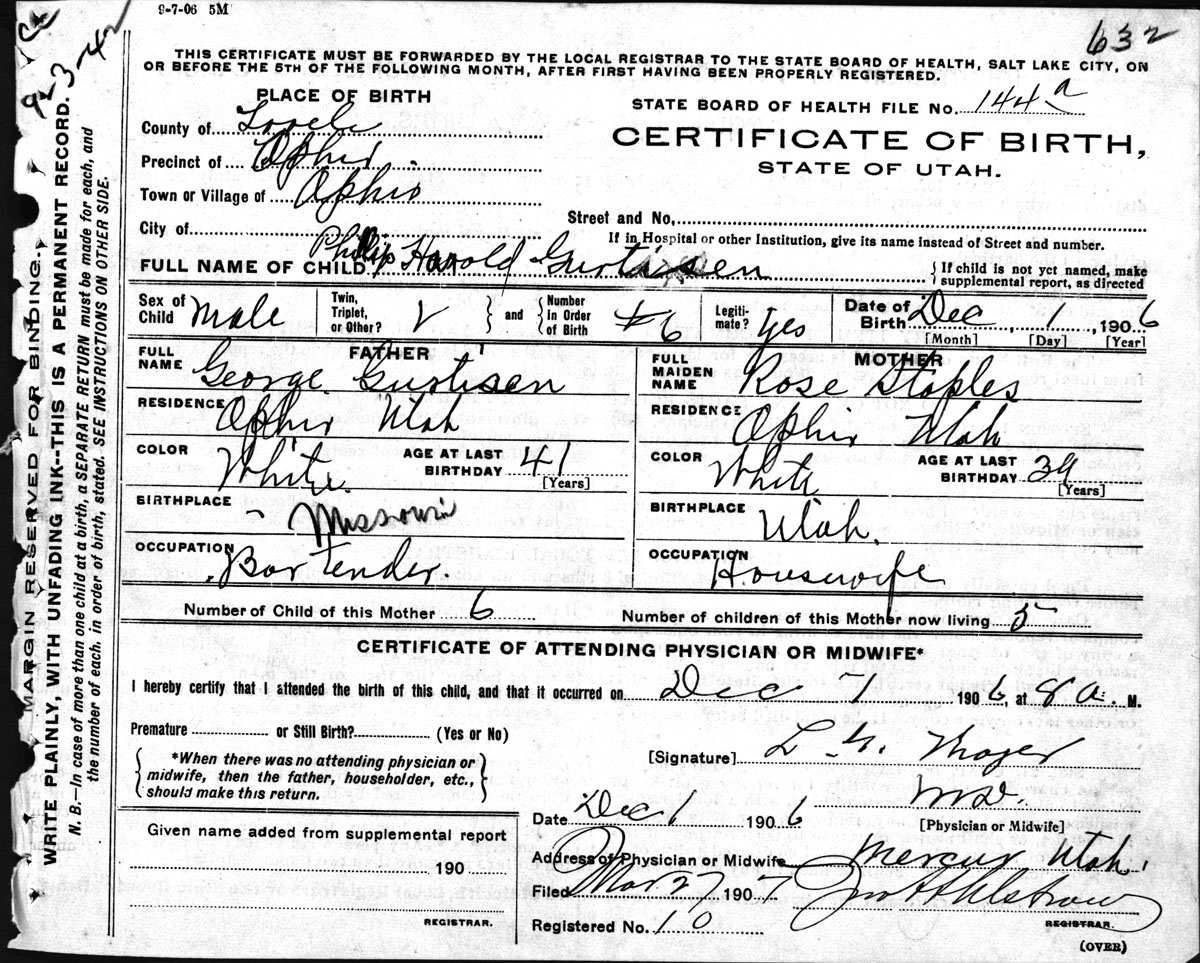 9-7-06 5M
632
THIS CERTIFICATE MUST BE FORWARDED BY THE LOCAL REGISTRAR TO THE STATE BOARD OF HEALTH, SALT LAKE CITY, ON
OR BEFORE THE 5TH OF THE FOLLOWING MONTH, AFTER FIRST HAVING BEEN PROPERLY REGISTERED.
PLACE OF BIRTH
STATE BOARD OF HEALTH FILE No. 144a
County of Tooele
CERTIFICATE OF BIRTH,
Precinct of Ophir
STATE OF UTAH.
Town or Village of Ophir
Street and No.
City of
If in Hospital or other Institution, give its name instead of Street and number.
FULL NAME OF CHILD Phillip Harold Gustisen
{ If child is not yet named, make
supplemental report, as directed
Sex of Child Male
Twin, Triplet, or Other?
and
Number In Order of Birth #6
Legiti- mate? Yes
Date of Birth Dec 1, 1906
[Month] [Day] [Year]
FATHER
FULL NAME George Gustisen
RESIDENCE Ophir Utah
COLOR White
AGE AT LAST BIRTHDAY 41
[Years]
BIRTHPLACE Missouri
OCCUPATION Bartender
MOTHER
FULL MAIDEN NAME Rose Staples
RESIDENCE Ophir Utah
COLOR White
AGE AT LAST BIRTHDAY 39
[Years]
BIRTHPLACE Utah.
OCCUPATION Housewife
Number of Child of this Mother 6
Number of children of this Mother now living 5
CERTIFICATE OF ATTENDING PHYSICIAN OR MIDWIFE*
I hereby certify that I attended the birth of this child, and that it occurred on Dec 1 1906, at 8 a. M.
Premature or Still Birth? (Yes or No)
*When there was no attending physician or
midwife, then the father, householder, etc.,
should make this return.
[Signature]
M.D.
[Physician or Midwife]
Date Dec 1 1906
Given name added from supplemental report
190
REGISTRAR.
Address of Physician or Midwife Mercur Utah.
Filed Mar 27 1907
Jno A Ahlstrom
REGISTRAR.
Registered No. 10
(OVER)
MARGIN RESERVED FOR BINDING.
WRITE PLAINLY, WITH UNFADING INK--THIS IS A PERMANENT RECORD.
N. B.—In case of more than one child at a birth, a SEPARATE RETURN must be made for each, and
the number of each, in order of birth, stated. SEE INSTRUCTIONS ON OTHER SIDE.